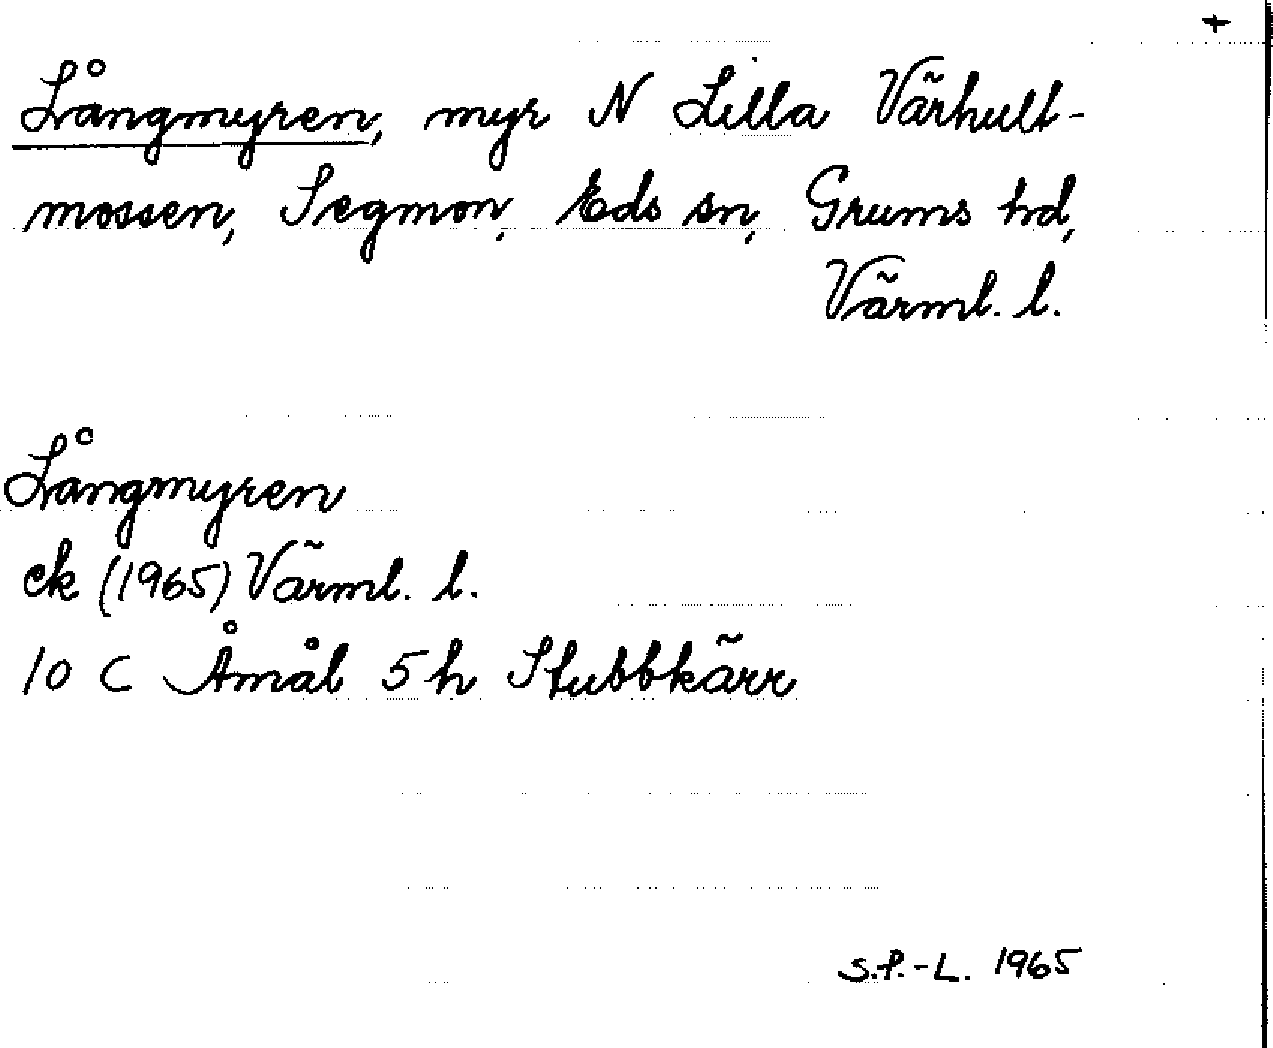 +
Långmyren, myr N Lilla Värhult-
mossen, Segmon, Eds sn, Grums hd,
Värml. l.
Långmyren
ek (1965) Värml. l.
10 C Åmål 5h Stubbkärr
S.P.-L. 1965